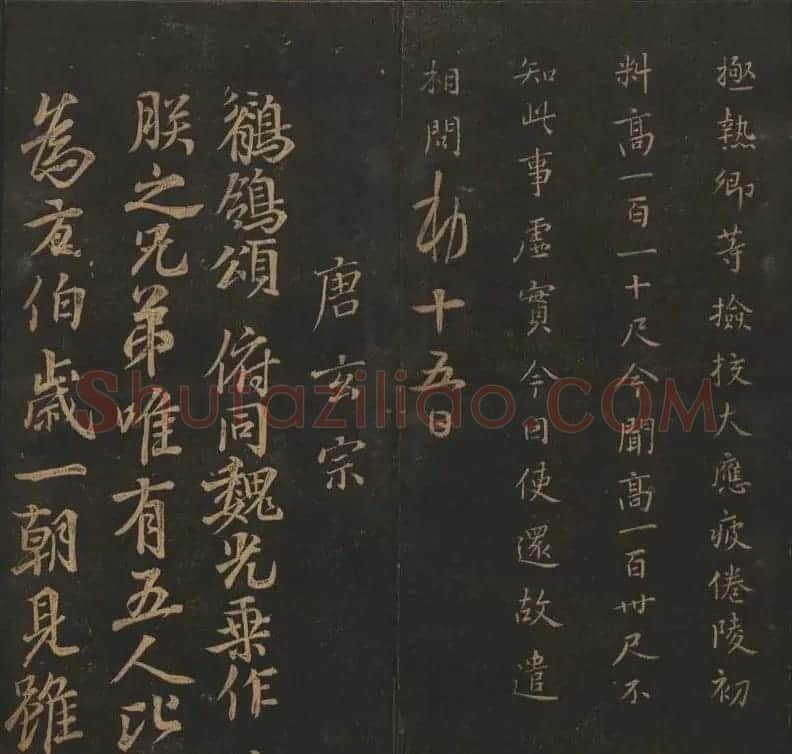 極熱卿等撿挍大應疲倦陵初
料高一百一十尺今聞高一百卌尺不
知此事虛實今日使還故遣
相問敕十五日
唐玄宗
鶺鴒頌 俯同魏光乗作
朕之兄弟唯有五人比
為方伯歲一朝見雖
Shufaziliao.COM